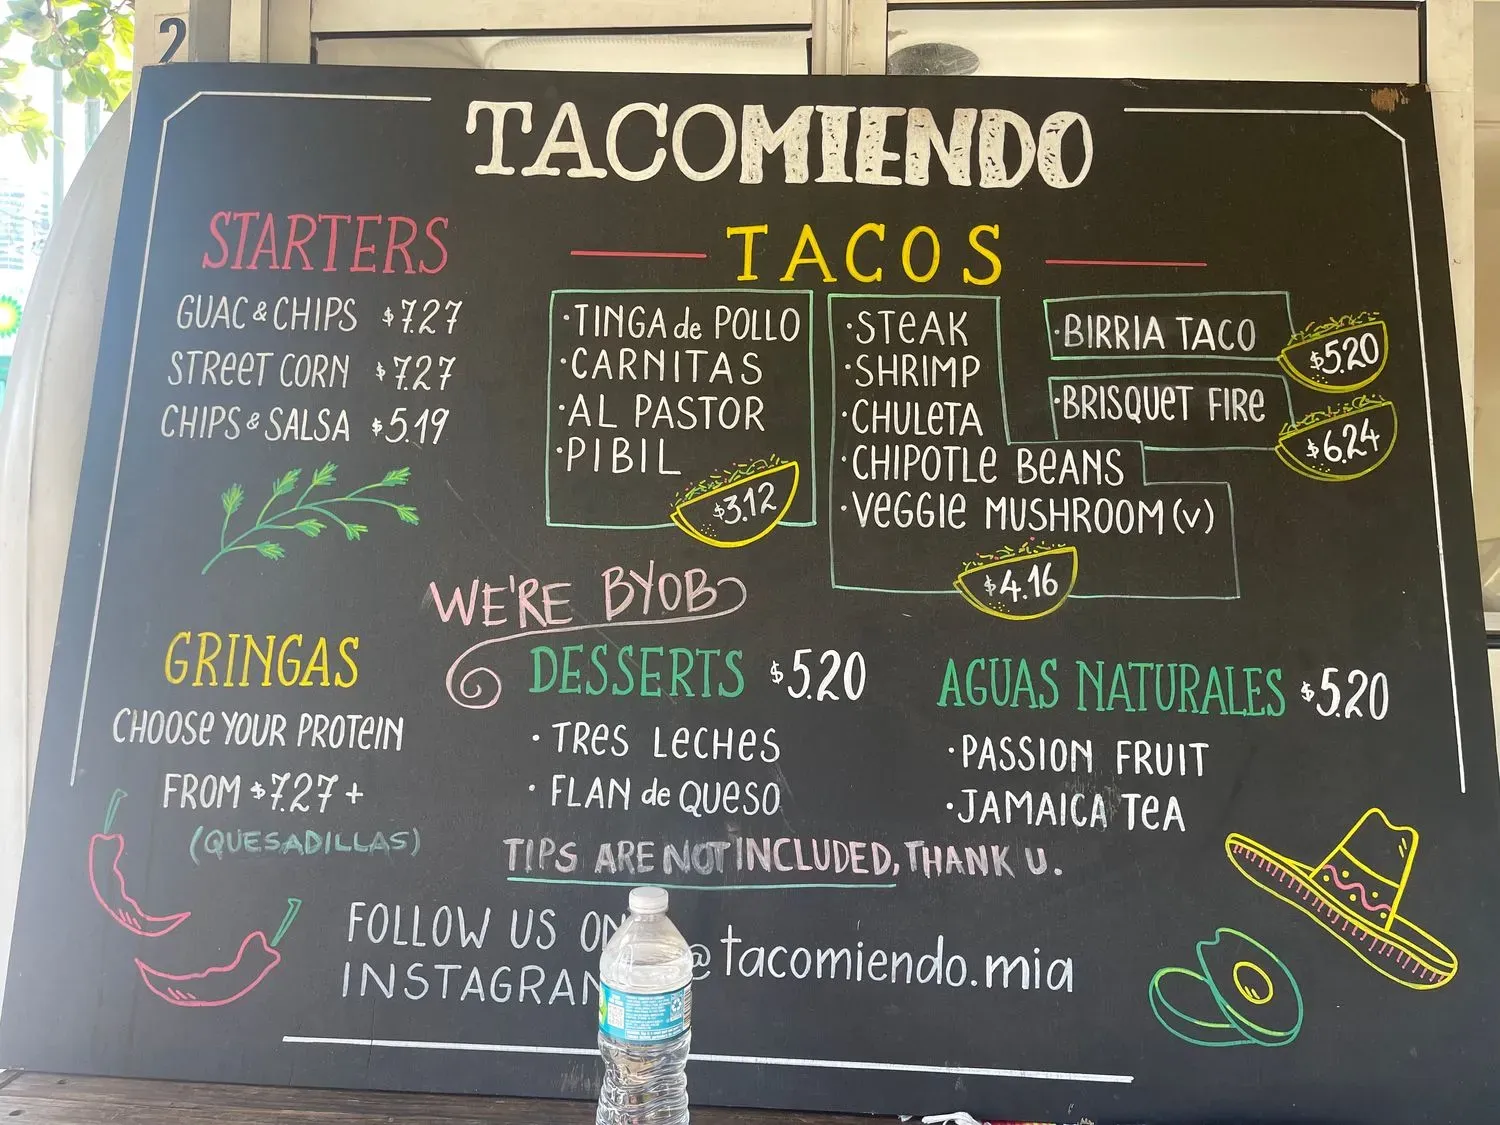 2
TACOMIENDO
STARTERS
GUAC & CHIPS $7.27
STREET CORN $7.27
CHIPS & SALSA $5.19
TACOS
·TINGA de POLLO
·CARNITAS
·AL PASTOR
·PIBIL
$3.12
·STEAK
·SHRIMP
·CHULETA
·CHIPOTLE BEANS
·VEGGIE MUSHROOM (V)
$4.16
·BIRRIA TACO
$5.20
·BRISQUET FIRE
$6.24
WE'RE BYOB
GRINGAS
CHOOSE YOUR PROTEIN
FROM $7.27 +
(QUESADILLAS)
DESSERTS $5.20
· TRES LECHES
· FLAN de QUESO
AGUAS NATURALES $5.20
·PASSION FRUIT
·JAMAICA TEA
TIPS ARE NOT INCLUDED, THANK U.
FOLLOW US ON
INSTAGRAM @tacomiendo.mia